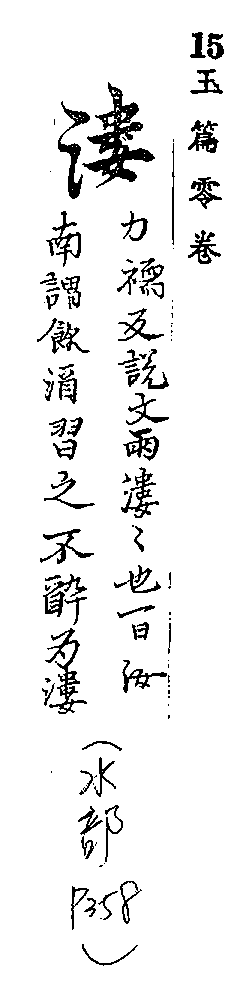 15 玉篇零卷
漊
力襦反說文雨漊〻也一曰汝
南謂飲酒習之不醉为漊
(水部 P358)